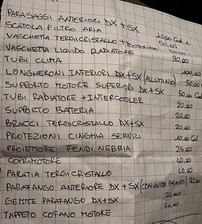 PARASASSI ANTERIORI DX+SX
SCATOLA FILTRO ARIA
VASCHETTA TERGICRISTALLO + 50,00
VASCHETTA LIQUIDO RADIATORE
TUBI CLIMA 30,00
LONGHERONI INFERIORI DX+SX (ALLUMINIO)
SUPPORTO MOTORE SUPERIORI DX+SX 50,00
TUBI RADIATORE + INTERCOOLER
SUPPORTO BATTERIA 20,00
BRACCI TERGICRISTALLO DX+SX
PROTEZIONI CINGHIA SERVIZI 40,00
PROIETTORE FENDINEBBIA 25,00
COPRIMOTORE 40,00
PARATIA TERGICRISTALLO 40,00
PARAFANGO ANTERIORE DX+SX
GEMICE PARAFANGO DX+SX 20,00
TAPPETO COFANO MOTORE 20,00